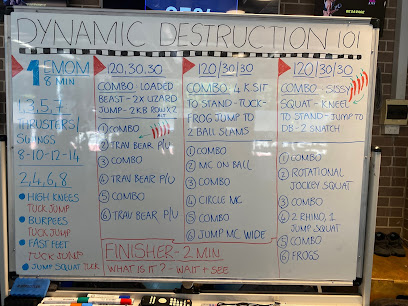 DYNAMIC DESTRUCTION 101
1 EMOM
8 MIN
1,3,5,7
THRUSTERS/
SWINGS
8-10-12-14
2,4,6,8
• HIGH KNEES
TUCK JUMP
• BURPEES
TUCK JUMP
• FAST FEET
TUCK JUMP
• JUMP SQUAT TUCK
120,30,30
COMBO - LOADED
BEAST - 2X LIZARD
JUMP - 2KB ROWX2
① COMBO
② TRAV BEAR P/U
③ COMBO
④ TRAV BEAR P/U
⑤ COMBO
⑥ TRAV BEAR P/U
120/30/30
COMBO - 4 K SIT
TO STAND - TUCK-
FROG JUMP TO
2 BALL SLAMS
① COMBO
② MC ON BALL
③ COMBO
④ CIRCLE MC
⑤ COMBO
⑥ JUMP MC WIDE
120/30/30
COMBO - SISSY
SQUAT - KNEEL
TO STAND - JUMP TO
DB - 2 SNATCH
① COMBO
② ROTATIONAL
JOCKEY SQUAT
③ COMBO
④ 2 RHINO, 1
JUMP SQUAT
⑤ COMBO
⑥ FROGS
FINISHER - 2 MIN
WHAT IS IT? - WAIT + SEE